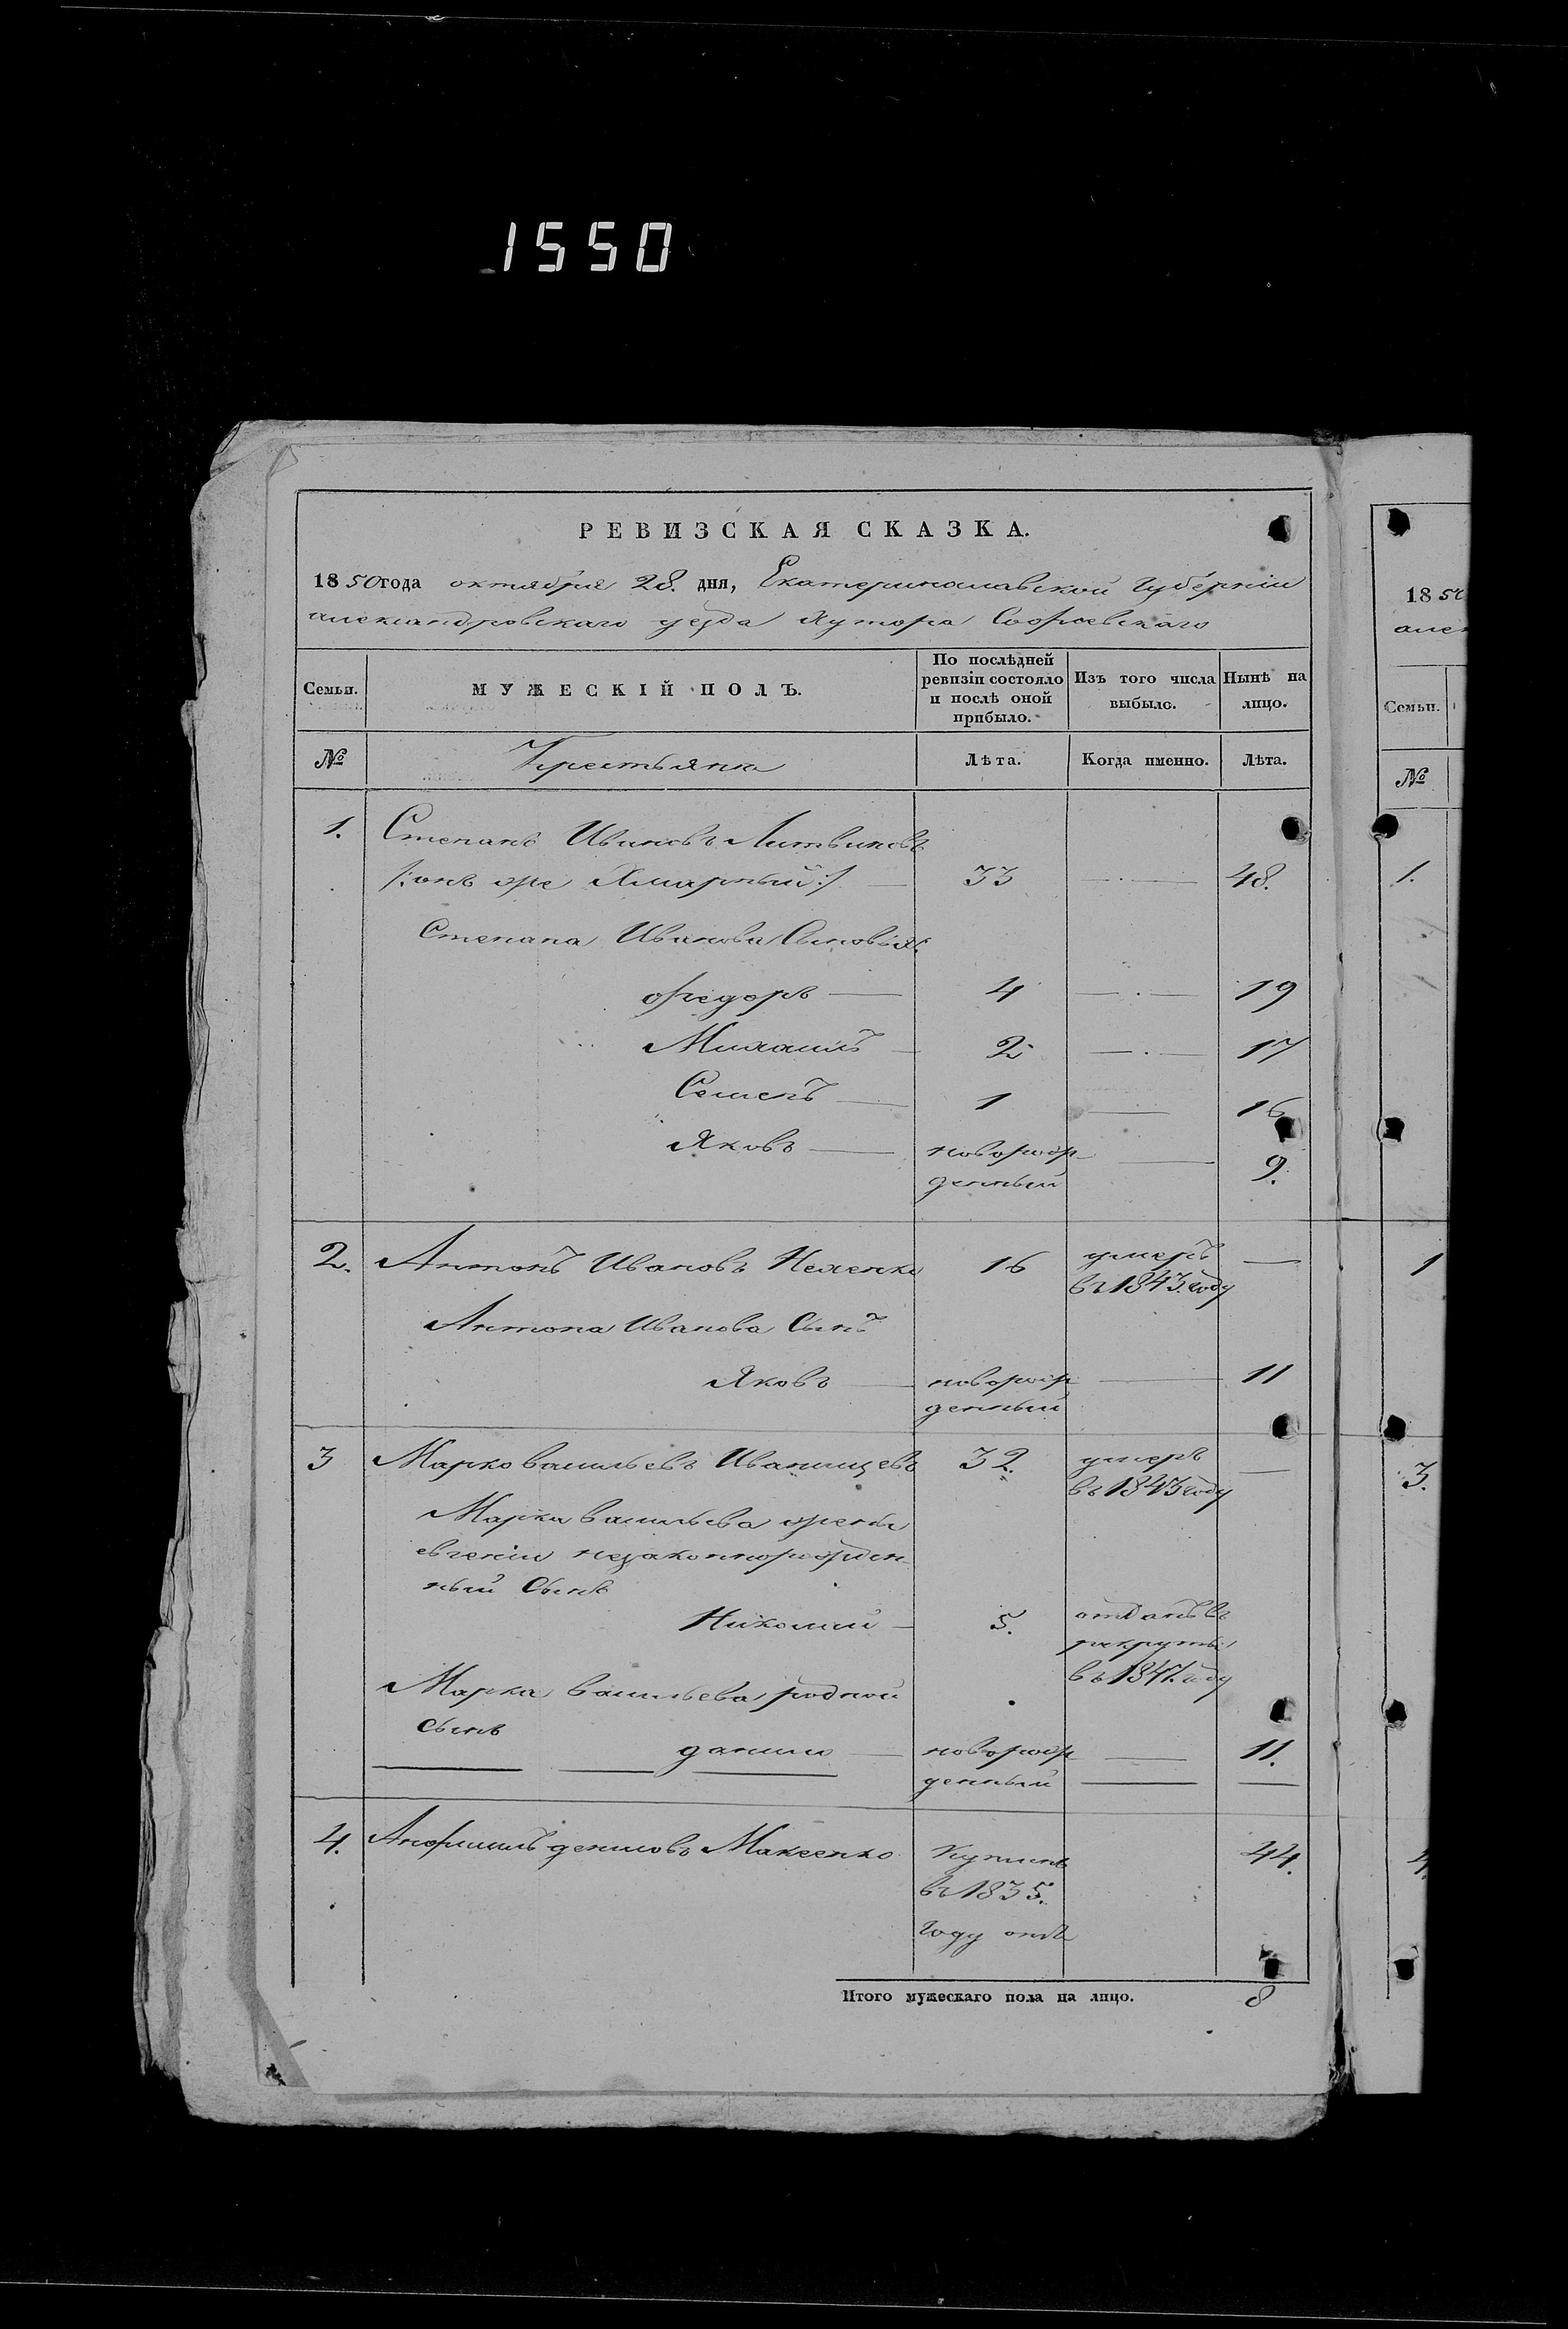 1550
РЕВИЗСКАЯ СКАЗКА.
1850 года октября 28. дня, Екатеринославской Губерніи
александровскаго уезда Хутора Софіевскаго
Семьи. МУЖЕСКІЙ ПОЛЪ. По послѣдней ревизіи состояло и послѣ оной прибыло. Изъ того числа выбыло. Нынѣ на лицо.
№ Крестьяне Лѣта. Когда именно. Лѣта.
1. Степанъ Ивановъ Литвиновъ
/:онъ же Хмарный:/ 33 48.
Степана Иванова Сыновья:
Федоръ 4 19
Михаилъ 2 17
Семенъ 1 16
Яковъ новорож 9.
денный
2. Антонъ Ивановъ 16 умеръ
въ 1843. году
Антона Иванова Сынъ
Яковъ новорож 11
денный
3 Марко васильевъ Иванищевъ 32. умеръ
въ 1843 году
Марка васильева жены
евгеніи незаконнорожден
ный Сынъ
Николай 5. отданъ въ
рекруты
въ 1847. году
Марка васильева родной
Сынъ
данило новорож 11.
денный
4. денисовъ Макеенко Купленъ 44.
въ 1835.
году отъ
Итого мужескаго пола на лицо. 8
1850
алек
Семьи.
№
1.
1
3.
4.